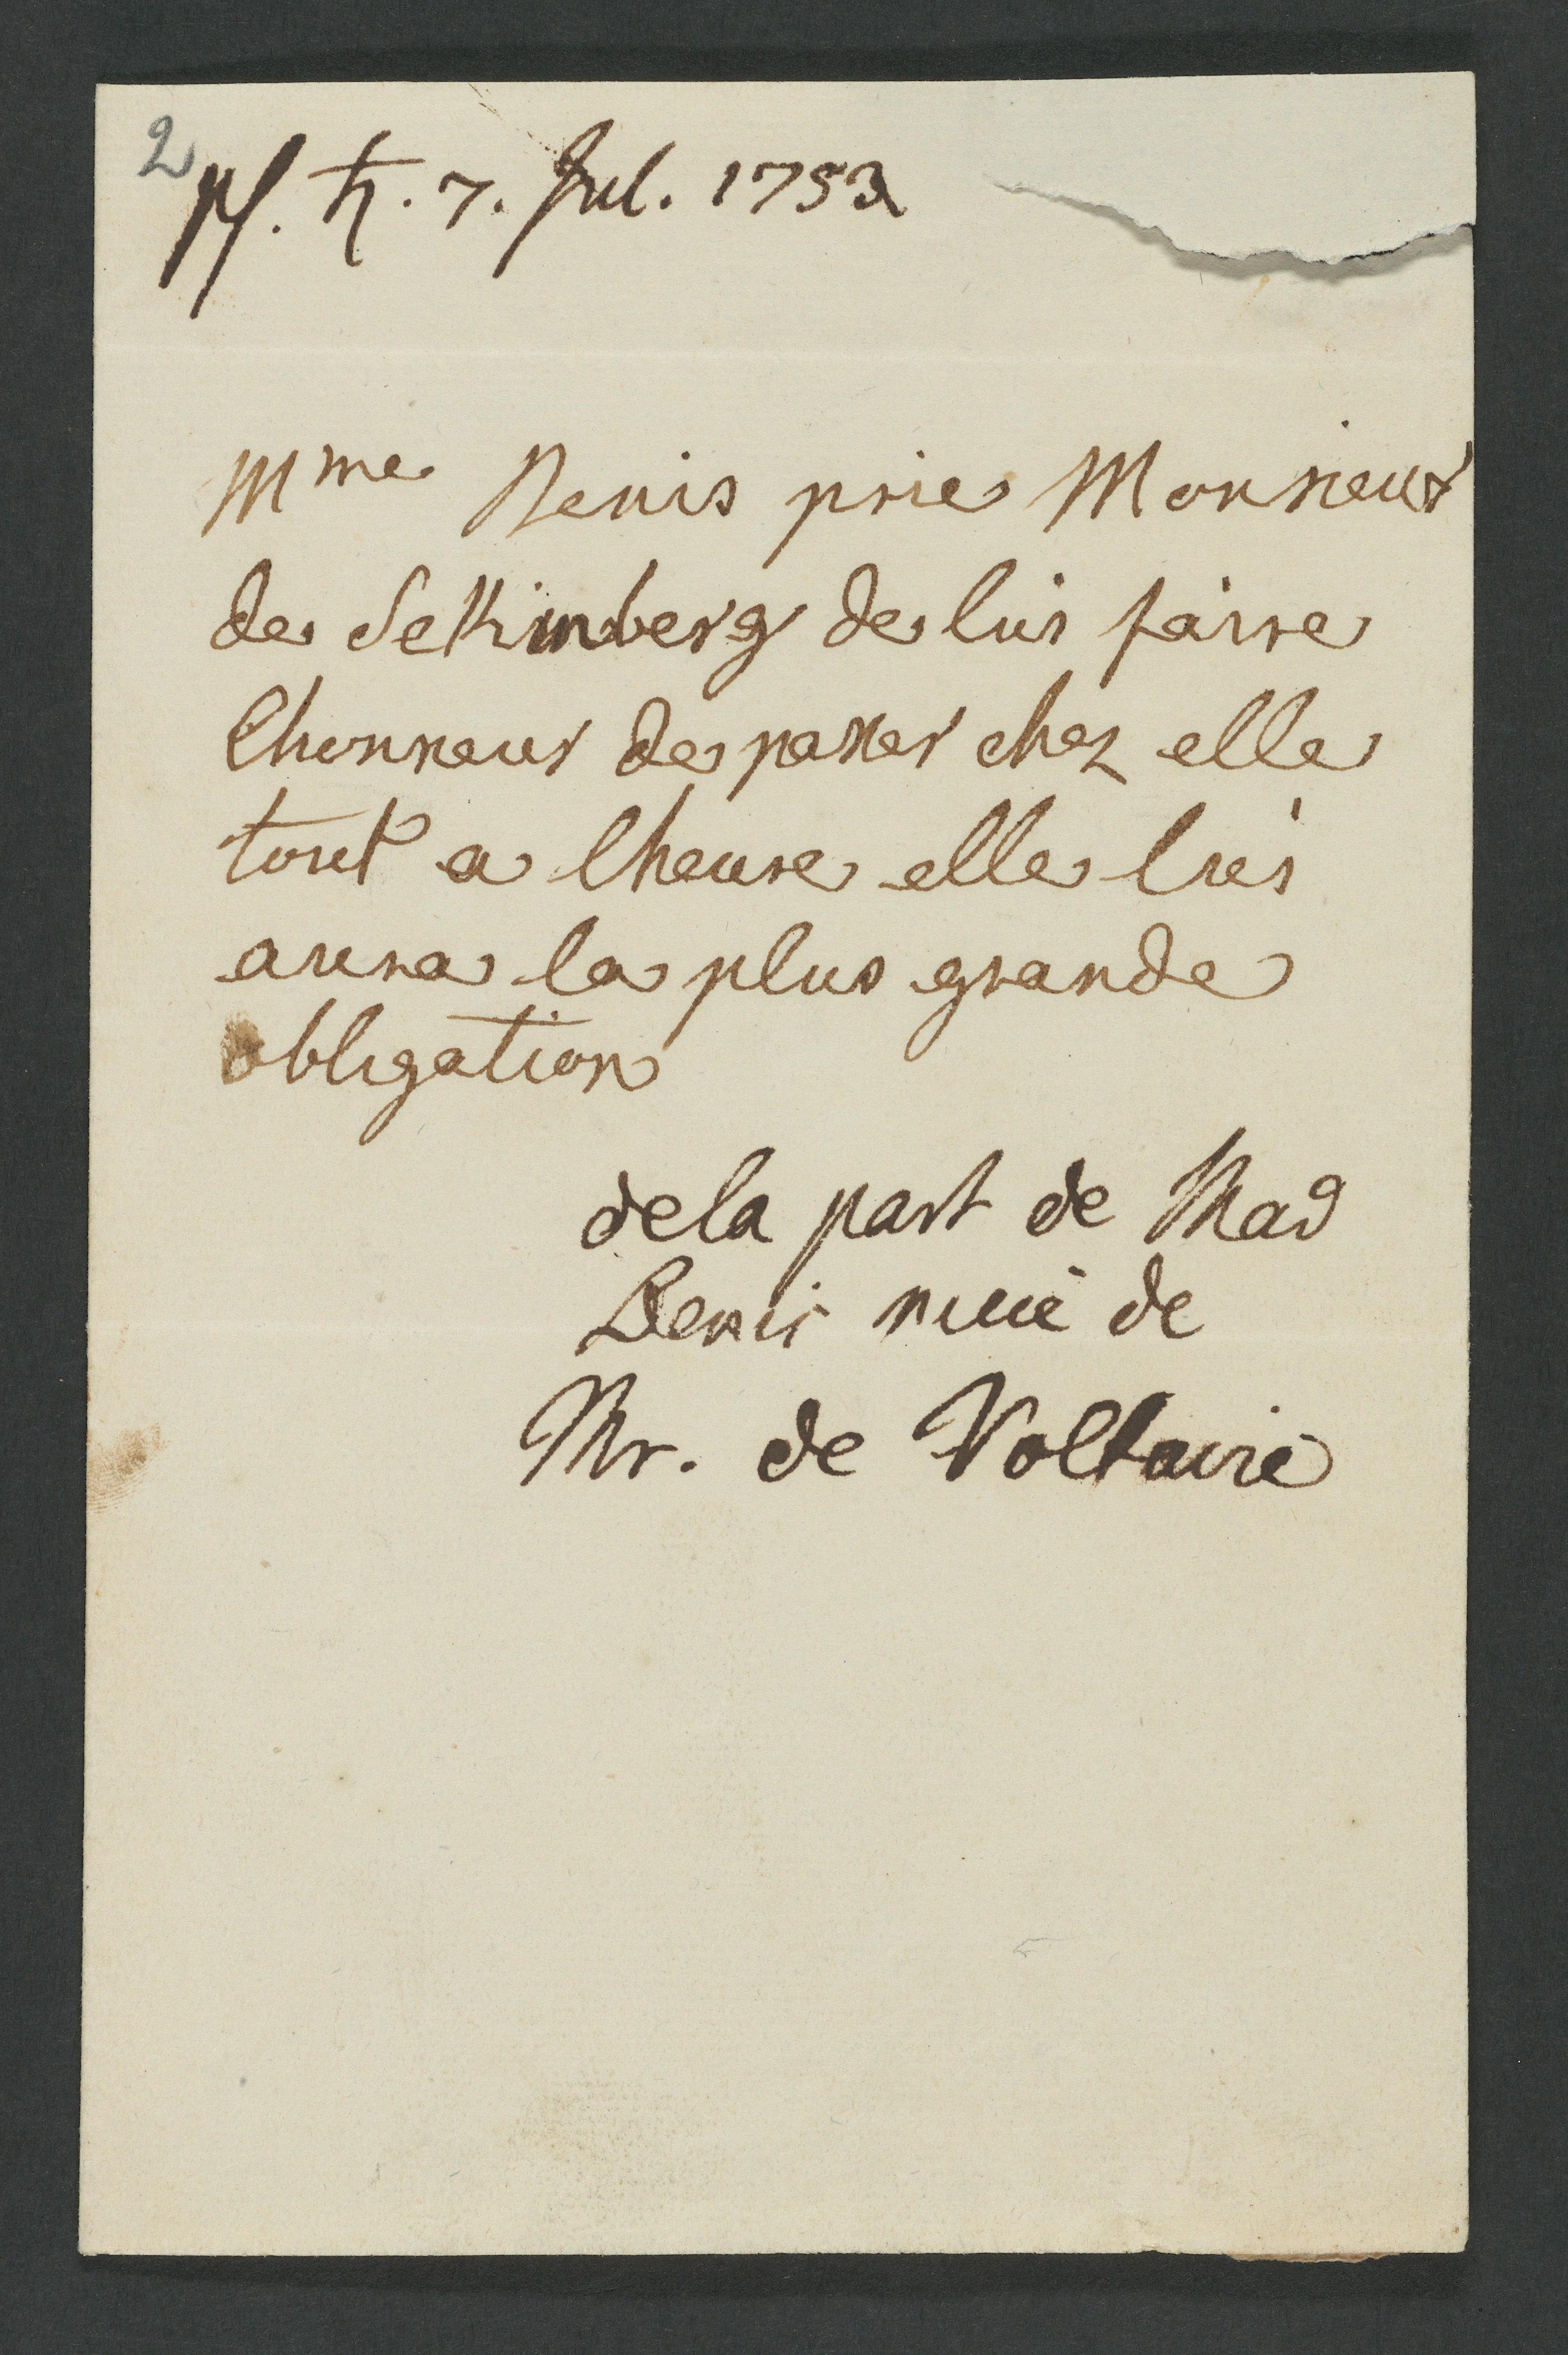 2
ps. ♄. 7. Jul. 1753
Mme Denis prie Monsieur
de Sekimberg de lui faire
lhonneur de passer chez elle
tout a lheure elle lui
aura la plus grande
obligation
dela part de Mad
Denis niece de
Mr. de Voltaire